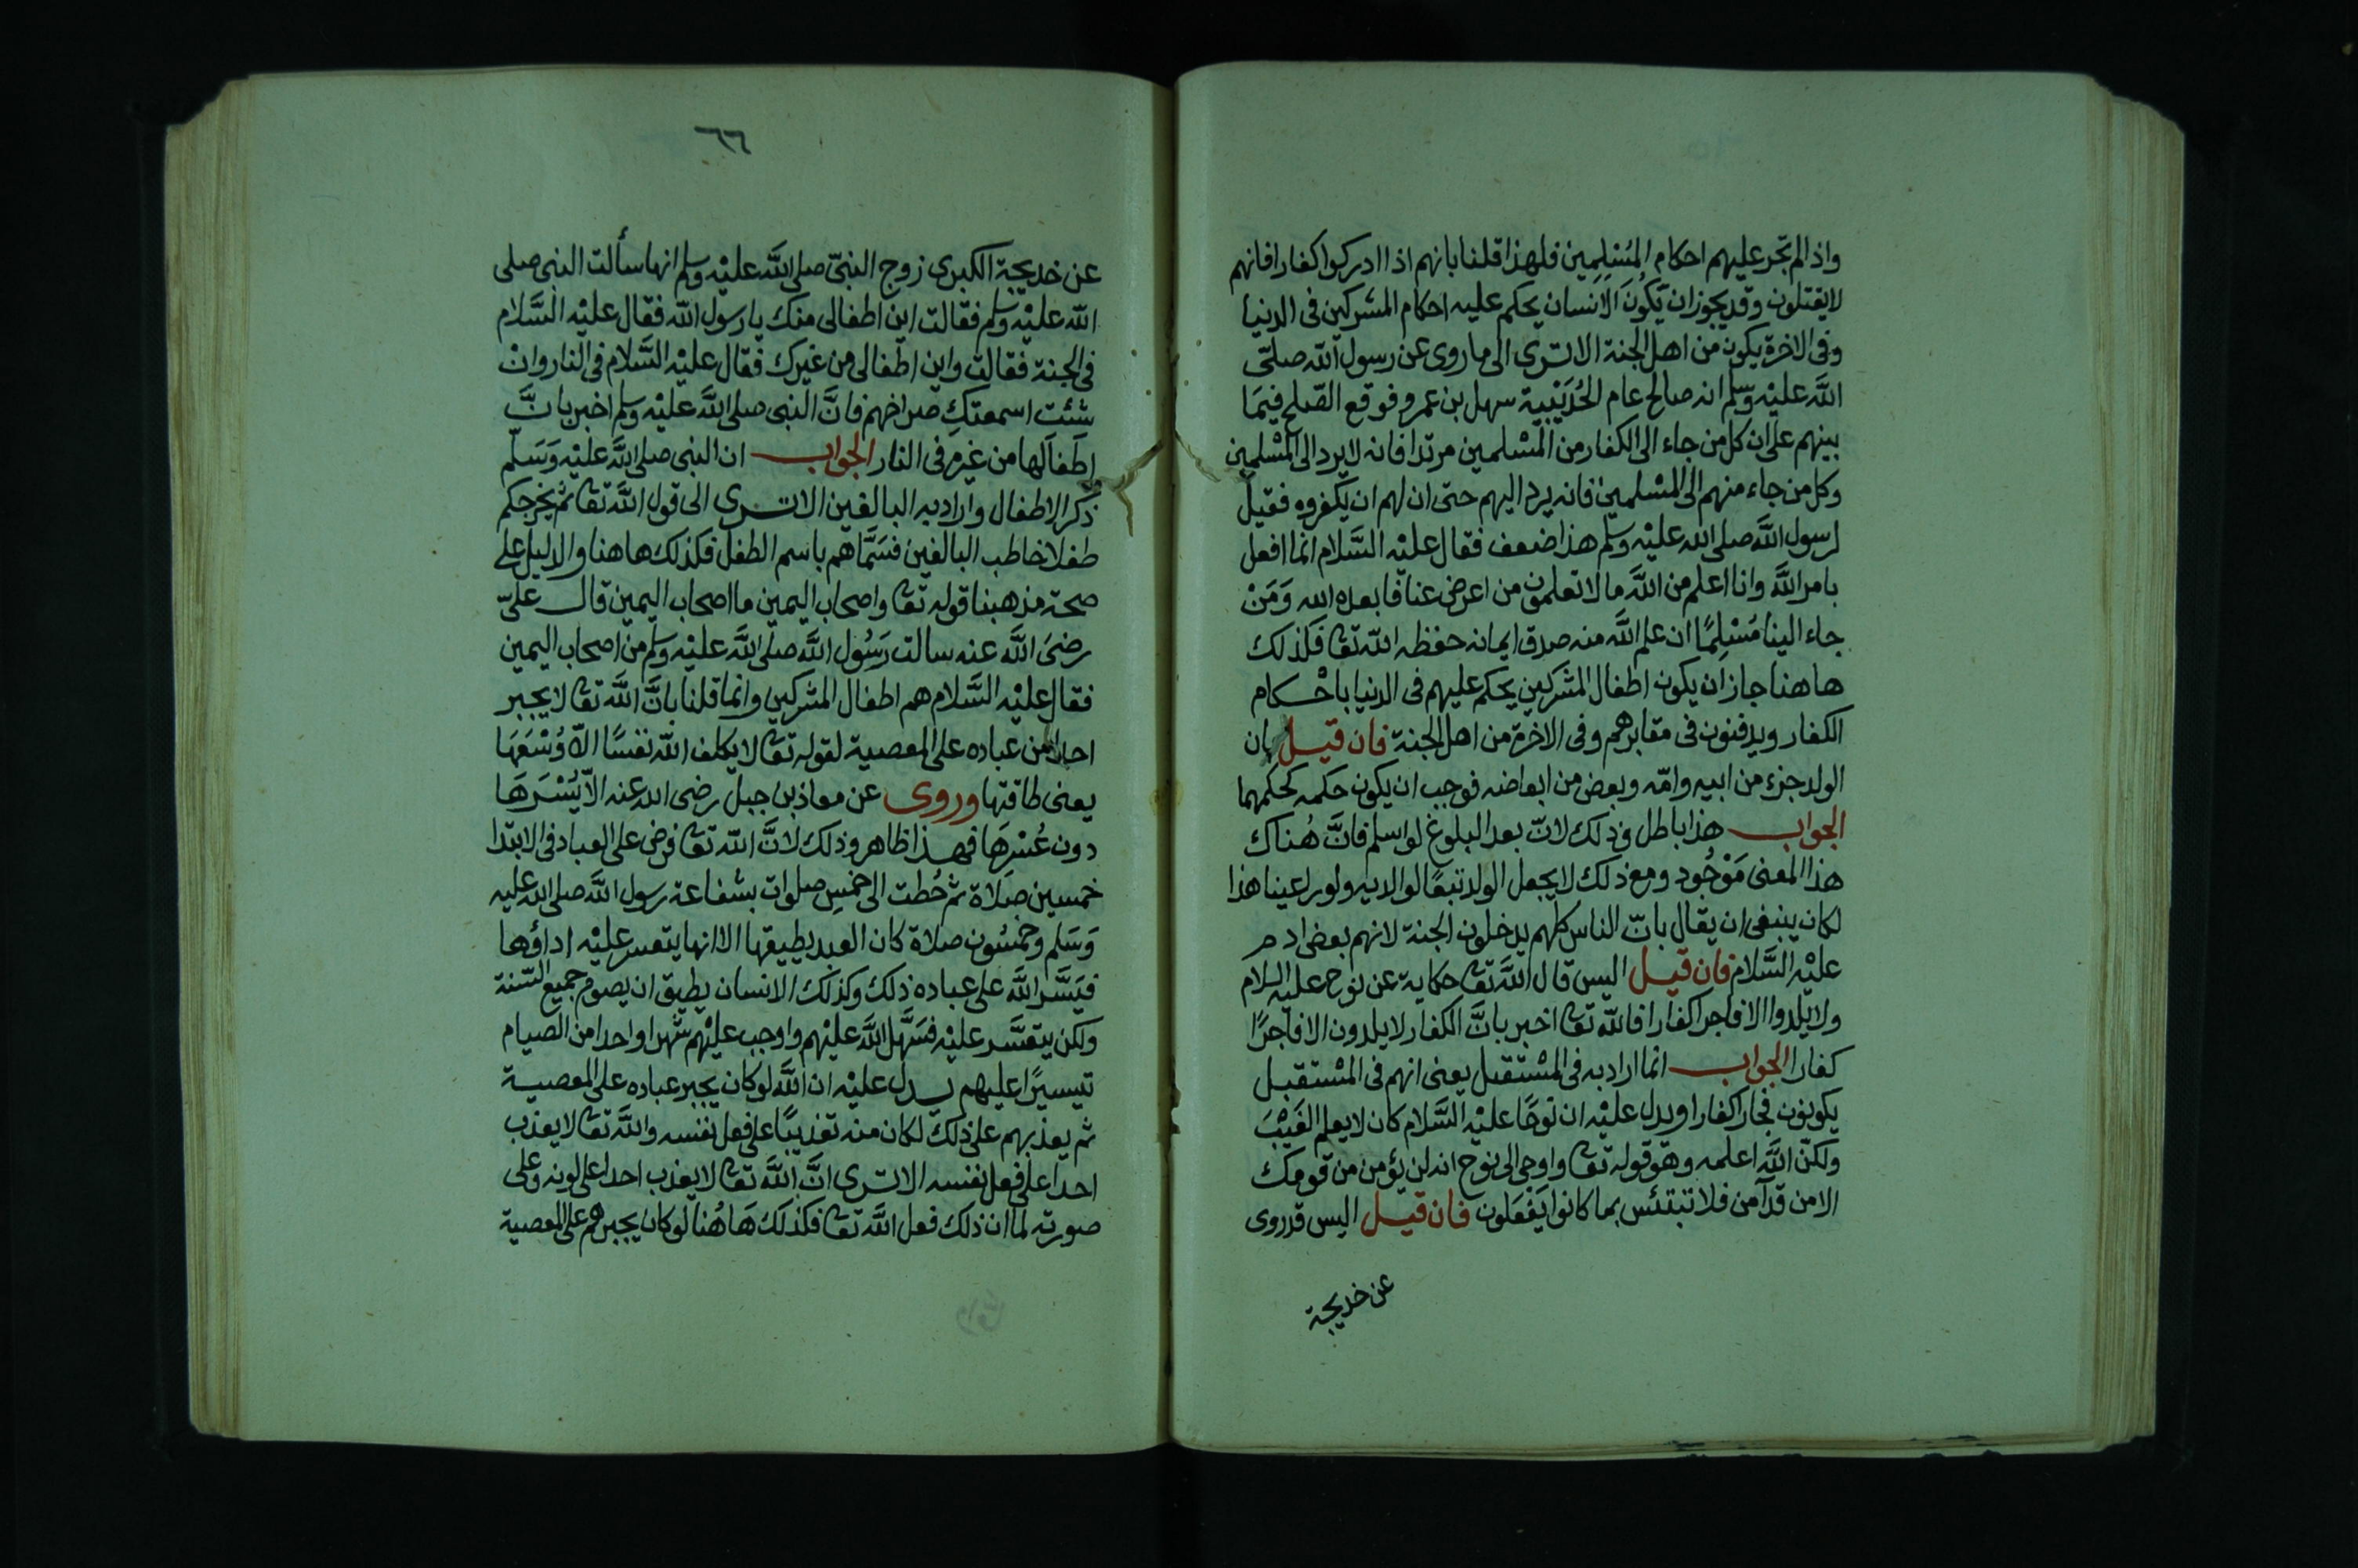 واذا لم تجر عليهم احكام المُسْلِمِين فلهذا قلنا بانهم اذا ادركوا كفارا فانهم
لايقتلون وقد يجوز ان يَكُونَ الاَنسان يحكم عليه احكام المشركين فى الدنيا
وفى الاخرة يكون من اهل الجنة الا ترى الى ما روى عن رسول الله صلّى
الله عليْه وسلم انه صالح عام الحُدَيْبِية سهل بن عمرو فوقع الصّلح فيمَا
بينهم على ان كل من جاء الى الكفار من المسْلمين مرتدا فانه لايرد الى المسْلمين
وكل من جاء منهم الى المسْلمين فانه يرد اليهم حتى ان لهم ان يكفروه فقيل
لرسول الله صلى الله عليْه وسلم هذا ضعف فقال عليْه السَّلام انما افعل
بامر الله وانا اعلم من الله ما لا تعلمون من اعرض عنا فابعده الله وَمَنْ
جاء الينا مُسْلِمًا ان علم الله منه صدق ايمانه حفظه الله تعا فكذلك
هاهنا جاز ان يكون اطفال المشركين يحكم عليهم فى الدنيا باحْكام
الكفار ويدفنون فى مقابرهم وفى الاخرة من اهل الجنة فان قيل بان
الولد جزء من ابيه وامّه وبعض من ابعاضه فوجب ان يكون حكمه كحكمهما
الجواب هذا باطل وذلك لانّ بعد البلوغ لو اسلم فانَّ هُناك
هذا المعنى مَوْجُود ومع ذلك لايجعل الولد تبعًا لوالديه ولو راعينا هذا
لكان ينبغى ان يقال بانّ الناس كلهم يدخلون الجنة لانهم بعض ادم
عليْه السَّلام فان قيل اليس قال الله تعا حكاية عن نوح عليه السلام
ولا يلدوا الا فاجرا كفارا فالله تعا اخبر بانَّ الكفار لا يلدون الا فاجرًا
كفارا الجواب انما اراد به فى المسْتقبل يعنى انهم فى المسْتقبل
يكونون فجارا كفارا ويدل عليْه ان نوحًا عليْه السَّلام كان لا يعلم الغَيْبَ
ولكنّ الله اعلمه وهو قوله تعا واوحى الى نوح انه لن يؤمن من قومك
الا من قد آمن فلا تبتئس بما كانوا يَفْعَلون فان قيل اليس قد روى
عن خديجة
٦٦
عن خديجة الكبرى زوج النبىّ صلى الله عليْه وسلم انها سألت النبى صلى
الله عليْه وسلم فقالت اين اطفالى منك يا رسول الله فقال عليْه السَّلام
فى الجنة فقالت واين اطفالى من غيرك فقال عليْه السَّلام فى النار وانْ
شئت اسمعتكِ صراخهم فانَّ النبى صلى الله عليْه وسلم اخبر بانَّ
اطفالها من غيره فى النار الجواب ان النبى صلى الله عليْه وَسَلّم
ذكر الاطفال واراد به البالغين الا ترى الى قول الله تعا ثم يخرجكم
طفلا خاطب البالغين فسَمَّاهم باسم الطفل فكذلك هاهنا والدليل على
صحة مذهبنا قوله تعا واصحاب اليمين ما اصحاب اليمين قال علىّ
رضىَ الله عنه سالت رَسُول الله صلى الله عليْه وسلم من اصحاب اليمين
فقال عليْه السَّلام هم اطفال المشركين وانما قلنا بانَّ الله تعا لا يجبر
احدا من عباده على المعصية لقوله تعا لا يكلف الله نفسًا الاّ وُسْعَهَا
يعنى طاقتها وروى عن معاذ بن جبل رضى الله عنه الاّ يُسْرَهَا
دون عُسْرِهَا فهذا ظاهر وذلك لانَّ الله تعا فرض على العباد فى الابتدا
خمسين صَلاة ثم حُطت الى خمْسِ صلوات بشفاعة رسول الله صلى الله عليه
وَسَلم وخمسُون صلاة كان العبد يطيقها الا انها يتعسر عليْه اداؤها
فيَسَّر الله على عباده ذلك وكذلك الانسان يطيق ان يصوم جميع السّنة
ولكن يتعسَّر عليْه فسَهَّل الله عليْهم واوجب عليْهم شهرا واحدا من الصيام
تيسيرًا عليهم يدل عليْه ان الله لو كان يجبر عباده على المعصية
ثم يعذبهم على ذلك لكان منه تعذيبًا على فعل نفسه والله تعا لا يعذب
احدا على فعل نفسه الا ترى انَّ الله تعا لا يعذب احدا على لونه وعلى
صورته لما ان ذلك فعل الله تعا فكذلك هَا هُنا لو كان يجبرهم على المعصية